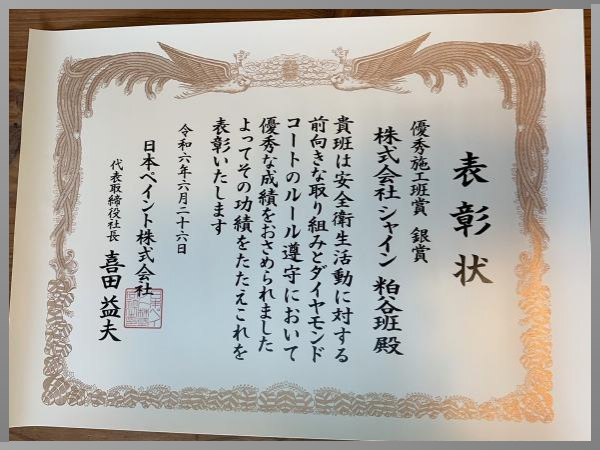 表彰状
優秀施工班賞 銀賞
株式会社シャイン 粕谷班 殿
貴班は安全衛生活動に対する
前向きな取り組みとダイヤモンド
コートのルール遵守において
優秀な成績をおさめられました
よってその功績をたたえこれを
表彰いたします
令和六年六月二十六日
日本ペイント株式会社
代表取締役社長 喜田益夫